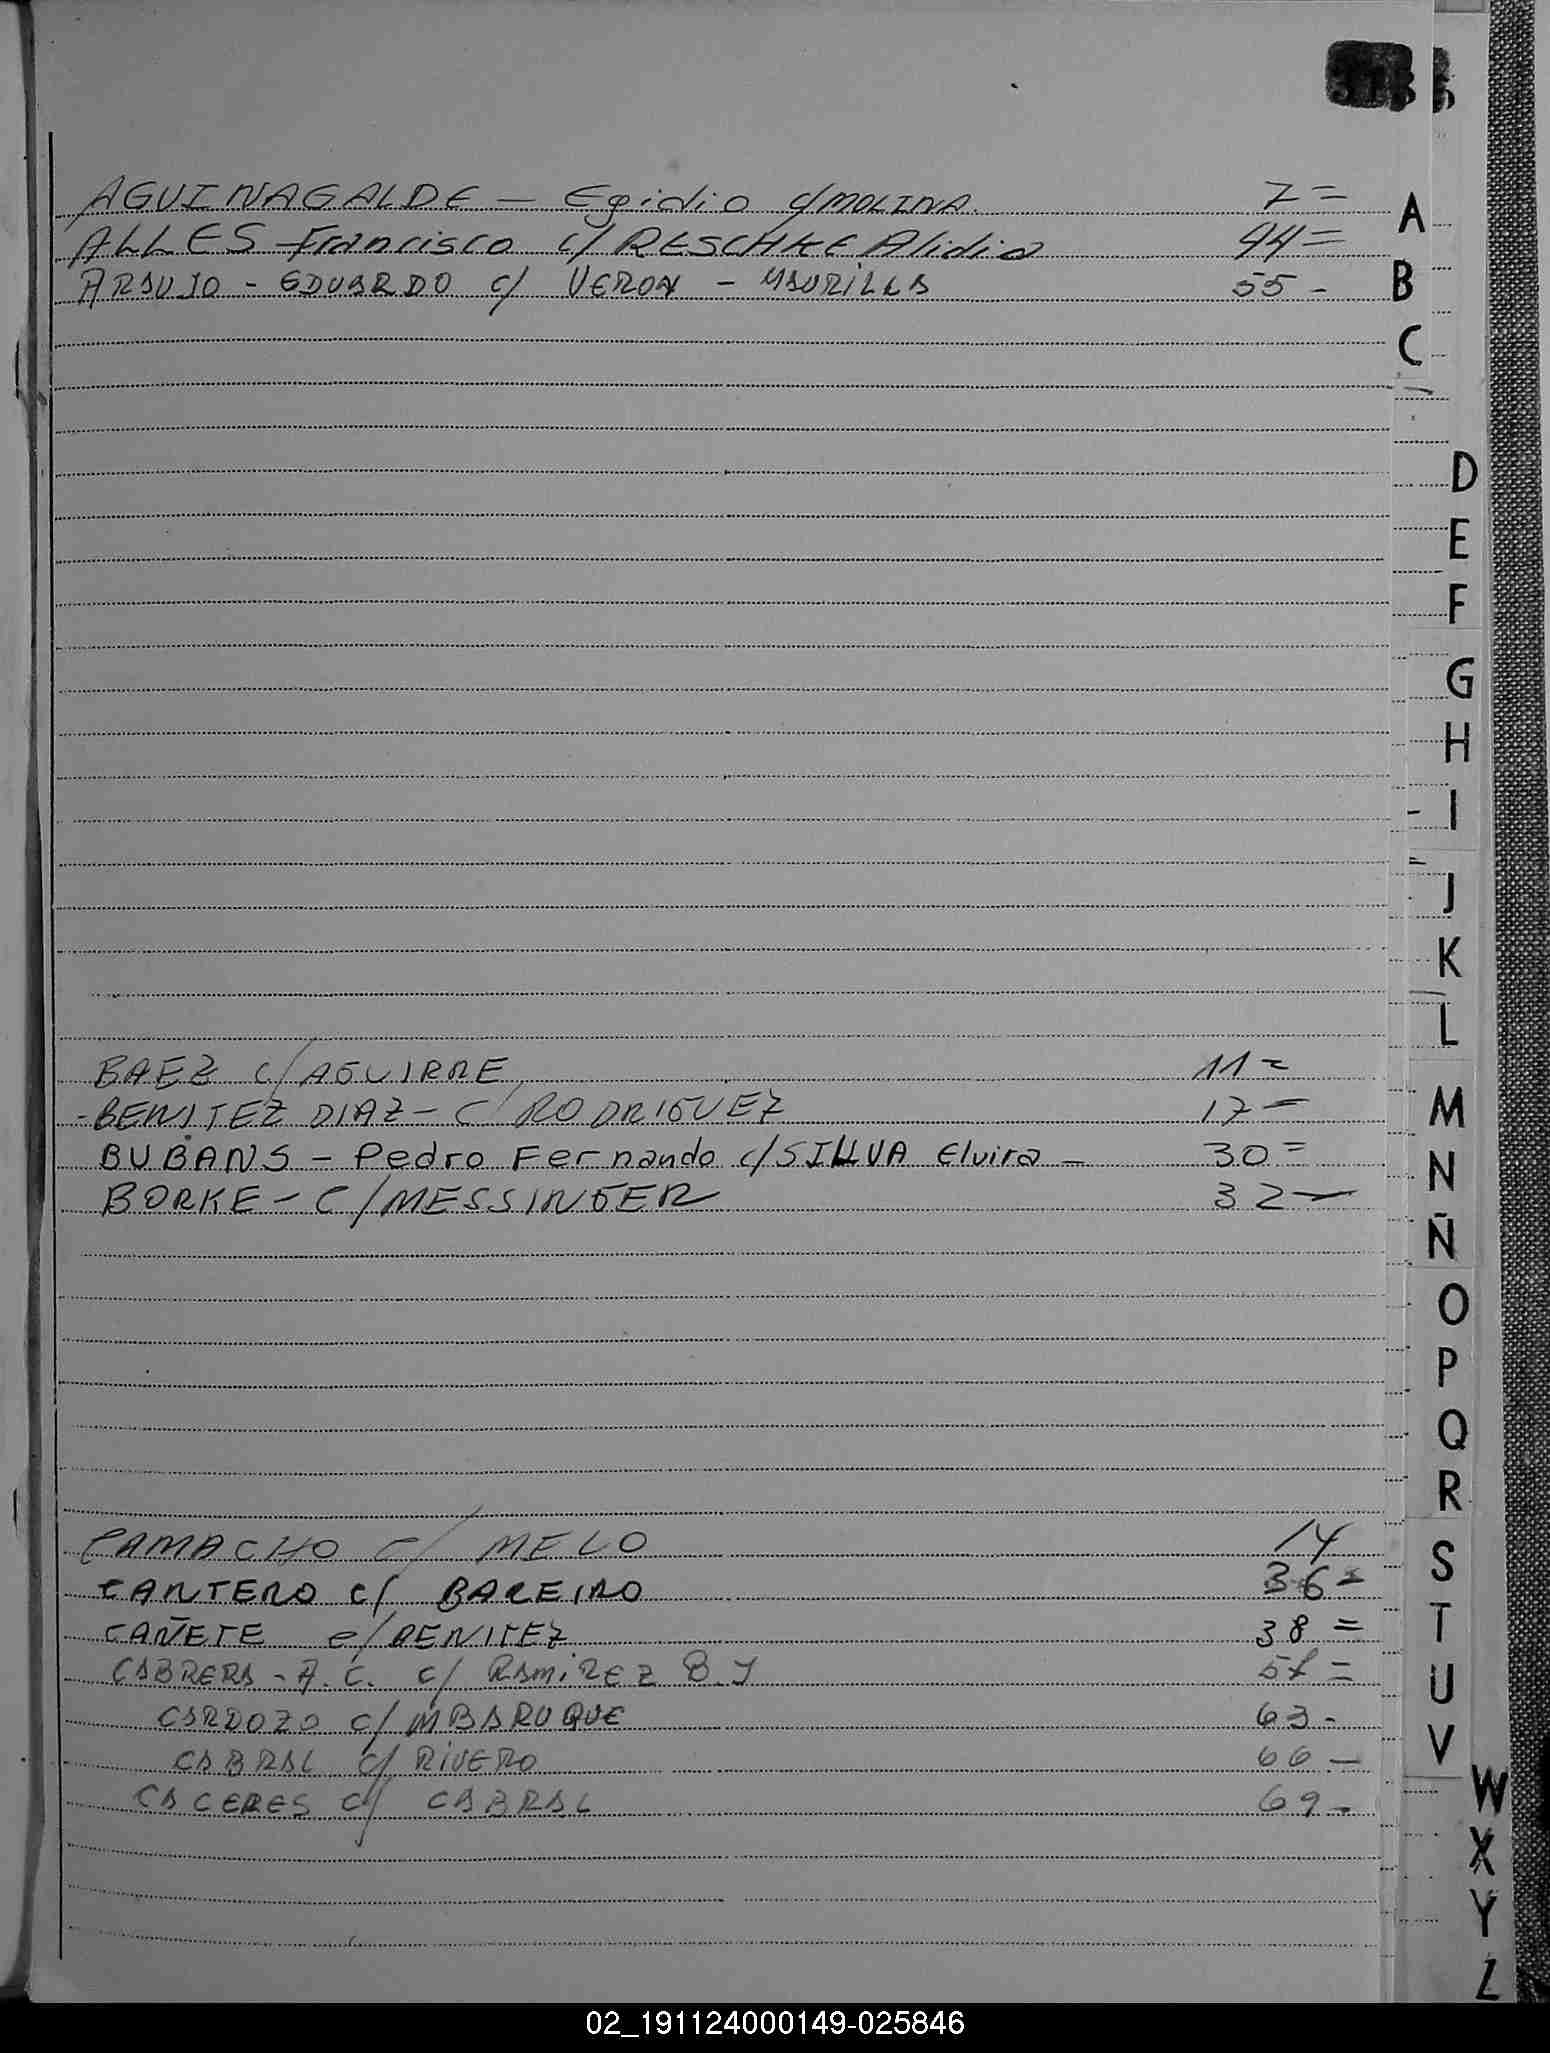 AGUINAGALDE - Egidio c/MOLINA. 7=
ALLES Francisco c/ RESCHKE Alidia 44=
ARAUJO - EDUARDO c/ VERON - MAURILLA 55-
BAEZ c/ AGUIRRE 11=
-BENITEZ DIAZ - C/ RODRIGUEZ 17-
BUBANS - Pedro Fernando c/ SILUVA Elvira - 30=
BORKE - C/ MESSINGER 32-
CAMACHO c/ MELO 14
CANTERO c/ BAREIRO 36-
CAÑETE c/ BENITEZ 38=
CABRERA - A.C. c/ RAMIREZ B.J 57=
CARDOZO c/ MBARUQUE 63-
CABRAL c/ RIVERO 66-
CACERES c/ CABRAL 69-
A
B
C
D
E
F
G
H
I
J
K
L
M
N
Ñ
O
P
Q
R
S
T
U
V
W
X
Y
Z
02_191124000149-025846